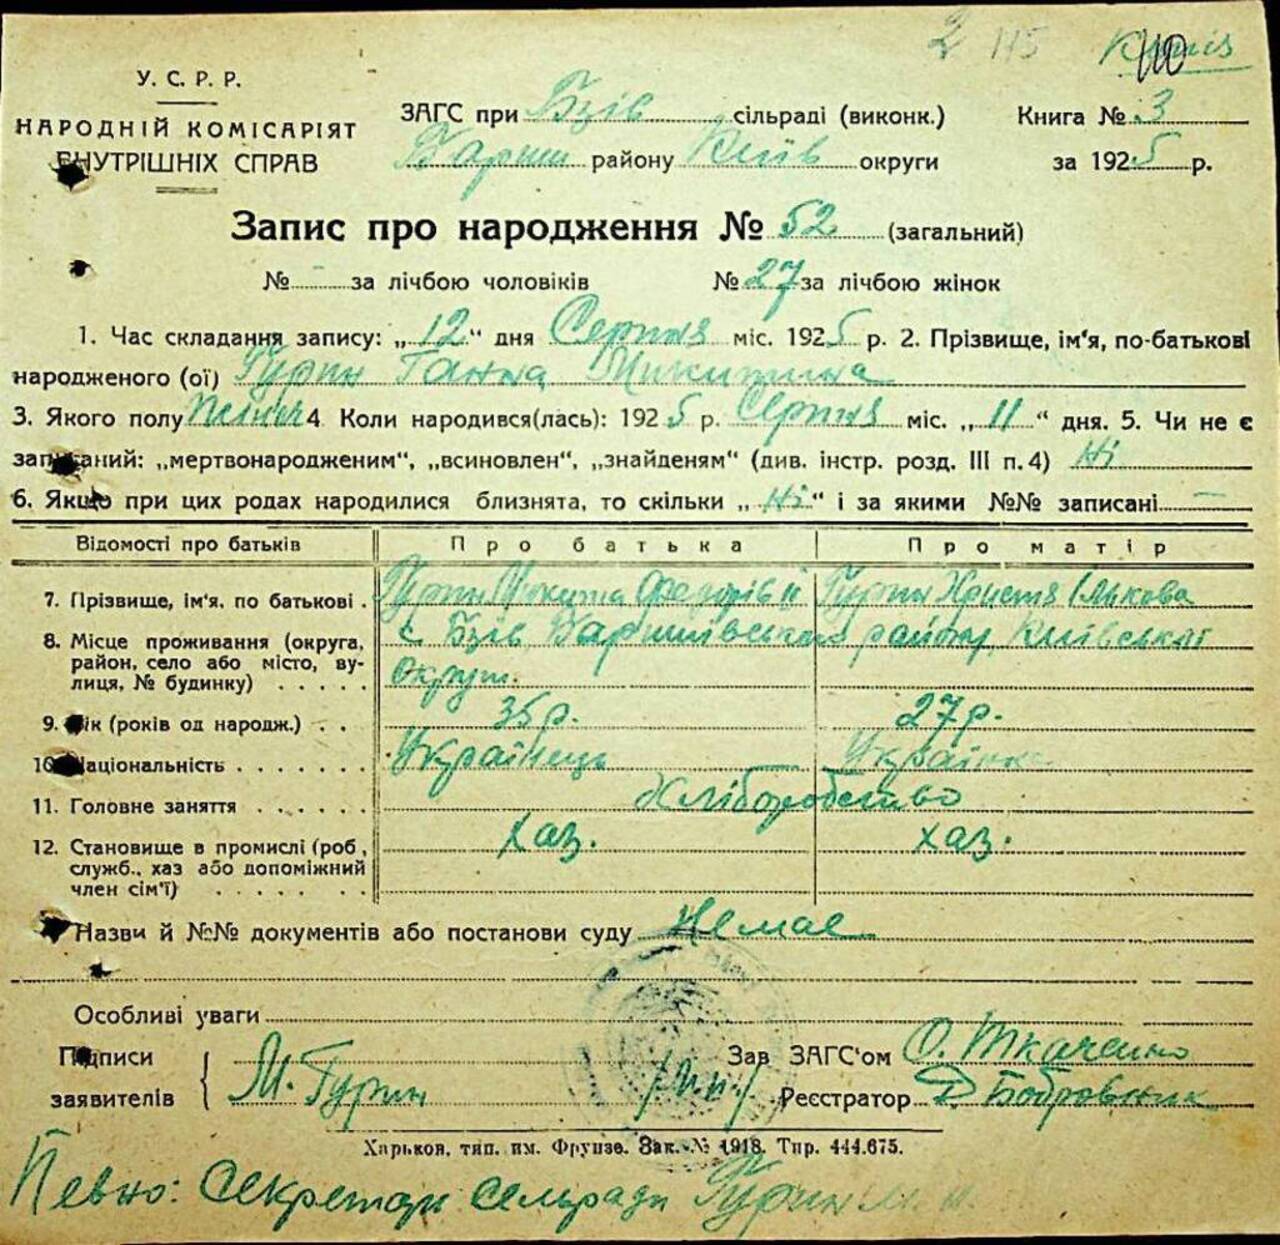 2 115 110
У. С. Р. Р.
НАРОДНІЙ КОМІСАРІЯТ
ВНУТРІШНІХ СПРАВ
ЗАГС при Бзів сільраді (виконк.) Книга № 3
Бариш району Київ округи за 1925 р.
Запис про народження № 52 (загальний)
№ - за лічбою чоловіків № 27 за лічбою жінок
1. Час складання запису: „12“ дня Серпня міс. 1925 р. 2. Прізвище, ім'я, по-батькові
народженого (ої) Гурин Ганна Микитина
3. Якого полу жіноч 4 Коли народився(лась): 1925 р. Серпня міс. „11“ дня. 5. Чи не є
записаний: „мертвонародженим“, „всиновлен“, „знайденям“ (див. інстр. розд. III п. 4) Ні
6. Якщо при цих родах народилися близнята, то скільки „Ні“ і за якими №№ записані —
Відомості про батьків Про батька Про матір
7. Прізвище, ім'я, по батькові . Гурин Микита Федорів Гурин Христя Ількова
8. Місце проживання (округа, район, село або місто, вулиця, № будинку) . . . . . с. Бзів Баришівського району, Київської
округи.
9. Вік (років од народж.) . . 35 р. 27 р.
10. Національність . . . . . . . Українець Українка
11. Головне заняття . . . . . . Хліборобство
12. Становище в промислі (роб, служб., хаз або допоміжний член сім'ї) . . . . . . . хаз. хаз.
Назви й №№ документів або постанови суду Немає
Особливі уваги
Підписи заявителів М. Гурин
Зав ЗАГС'ом О. Ткаченко
Реєстратор Д Бобровник
Харьков, тип. им. Фрунзе. Зак. № 1918. Тир. 444.675.
Певно: Секретар сельради Гурин